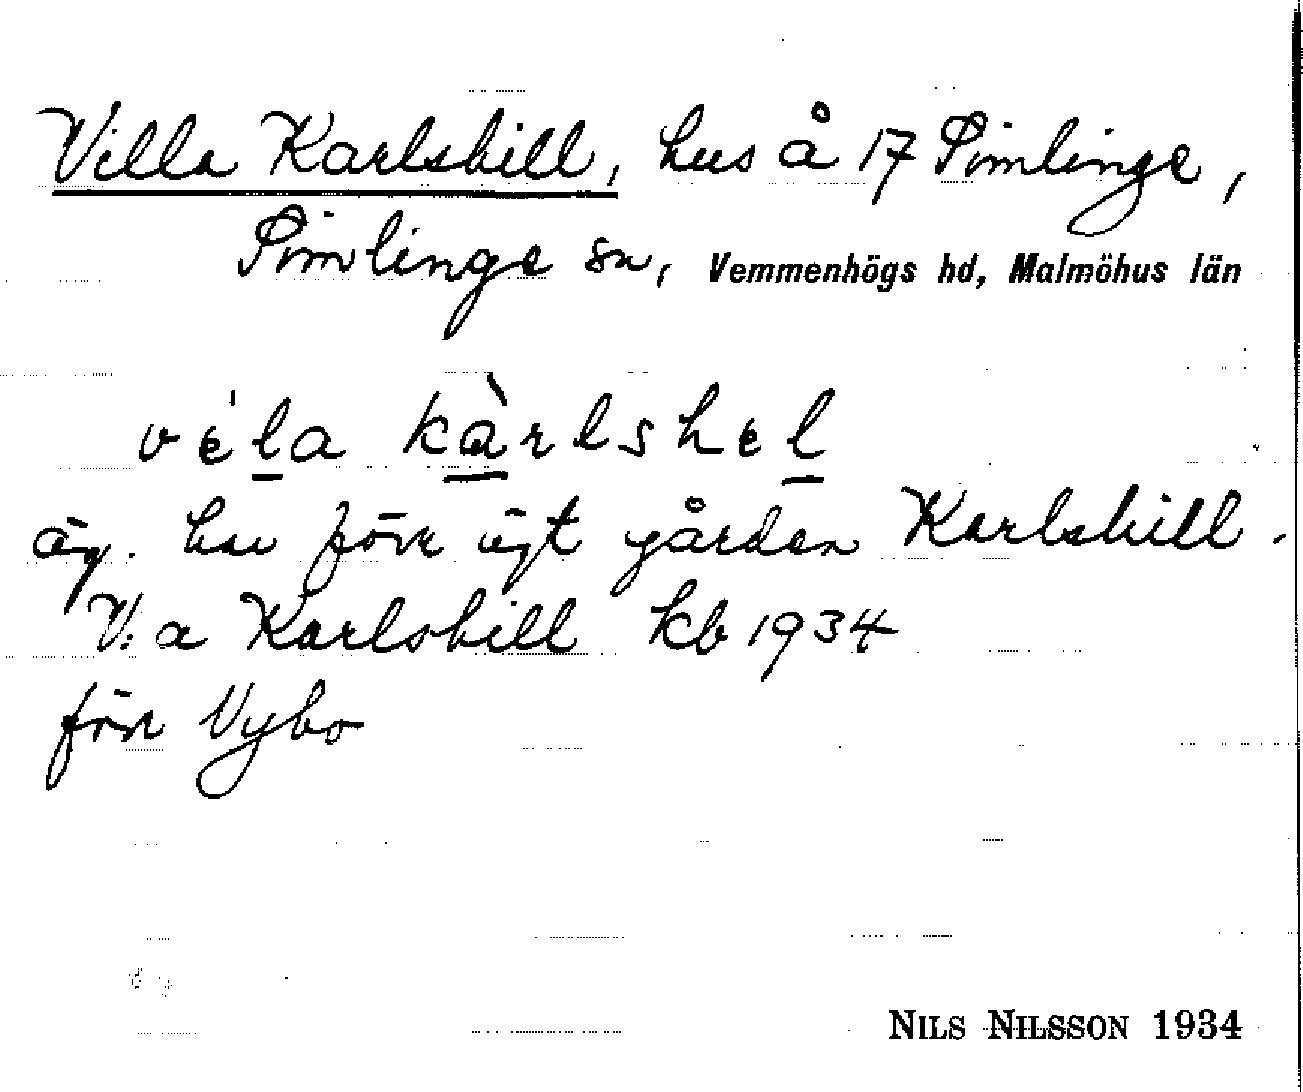 Villa Karlshill, hus å 17 Simlinge,
Simlinge sn, Vemmenhögs hd, Malmöhus län
véla kàrlshel
äg. har förr ägt gården Karlshill.
V:a Karlshill kb 1934
förr Vybo
NILS NILSSON 1934